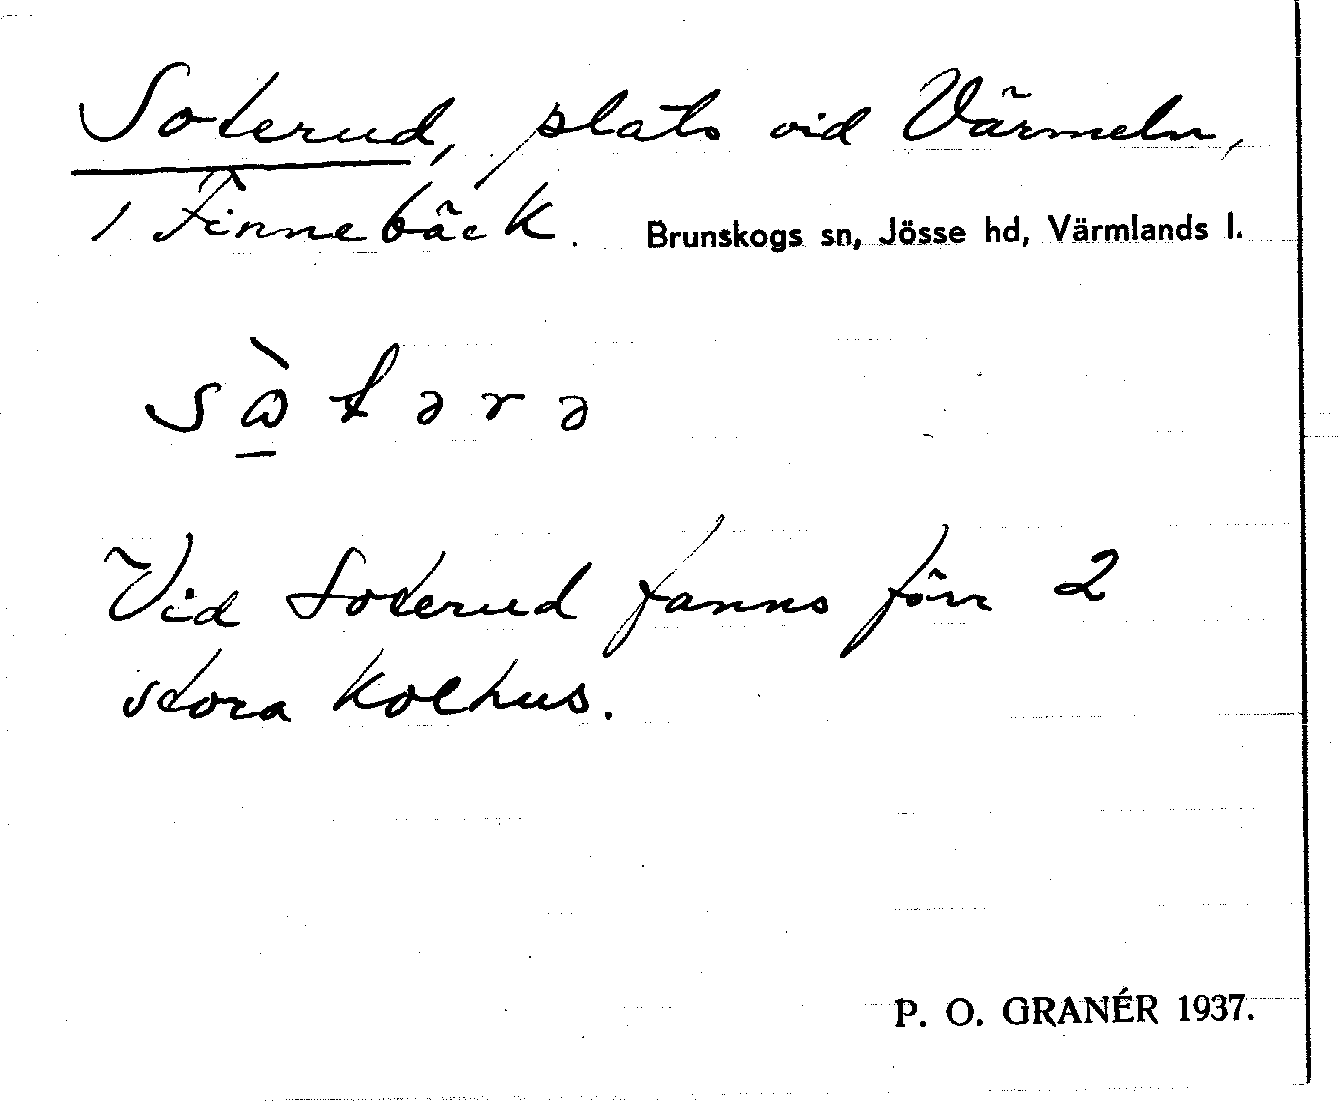 Soterud, plats vid Värmeln,
i Finnebäck. Brunskogs sn, Jösse hd, Värmlands l.
sὼ̱tərə
Vid Soterud fanns förr 2
stora kolhus.
P. O. GRANÉR 1937.